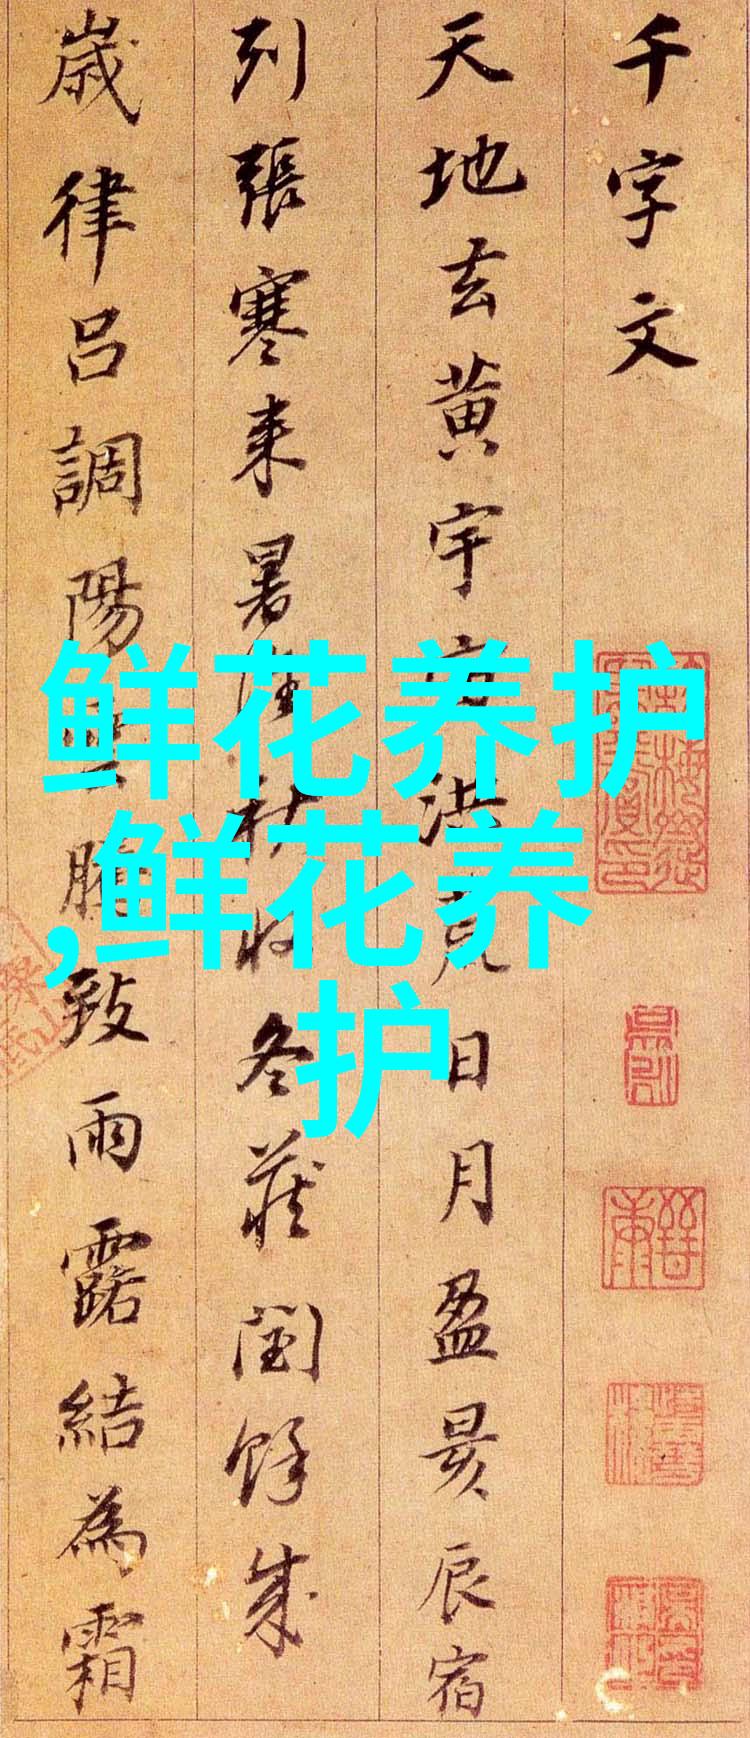 千字文
天地玄黄宇宙洪荒日月盈昃辰宿
列張寒来暑往秋收冬蔵閏餘成
歳律吕調陽雲騰致雨露結為霜
鲜花养护
,鲜花养
护